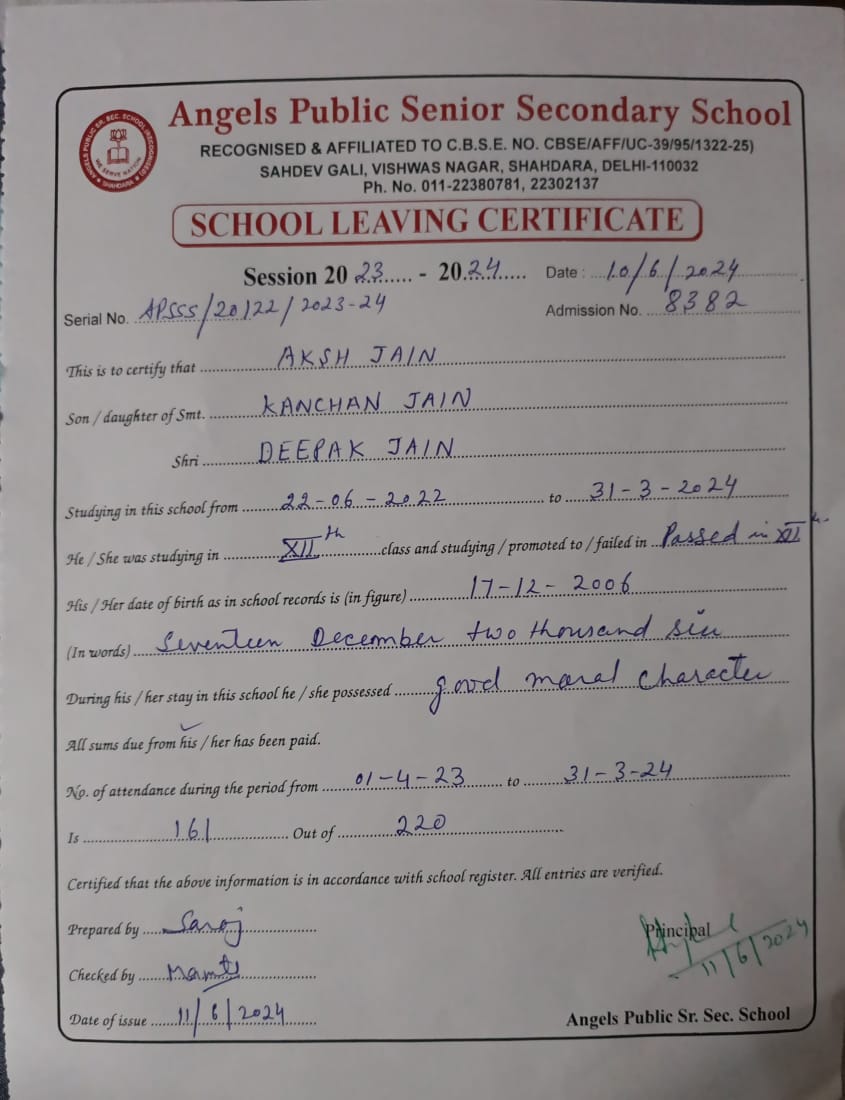 Angels Public Senior Secondary School
RECOGNISED & AFFILIATED TO C.B.S.E. NO. CBSE/AFF/UC-39/95/1322-25)
SAHDEV GALI, VISHWAS NAGAR, SHAHDARA, DELHI-110032
Ph. No. 011-22380781, 22302137
ANGELS PUBLIC SR. SEC. SCHOOL (RECOGNISED) SHAHDARA
WE SERVE NATION
SCHOOL LEAVING CERTIFICATE
Session 20 23..... - 20.24..... Date : ...10/6/2024
Serial No. APSSS/20122/2023-24 Admission No. ....8382
This is to certify that ........ AKSH JAIN
Son / daughter of Smt. ........ KANCHAN JAIN
Shri ........ DEEPAK JAIN
Studying in this school from ........ 22-06-2022 ........ to ..... 31-3-2024
He / She was studying in ........ XIIth ........class and studying / promoted to / failed in ..Passed in XIIth.
His / Her date of birth as in school records is (in figure) ........ 17-12-2006
(In words) .... Seventeen December two thousand six
During his / her stay in this school he / she possessed ........ good moral character
All sums due from his / her has been paid.
No. of attendance during the period from ..... 01-4-23 ..... to ..... 31-3-24
Is ........ 161 ........ Out of ........ 220 ........
Certified that the above information is in accordance with school register. All entries are verified.
Prepared by .....Saroj........
Principal
11/6/2024
Checked by ......Mamta........
Date of issue .....11/6/2024.....
Angels Public Sr. Sec. School